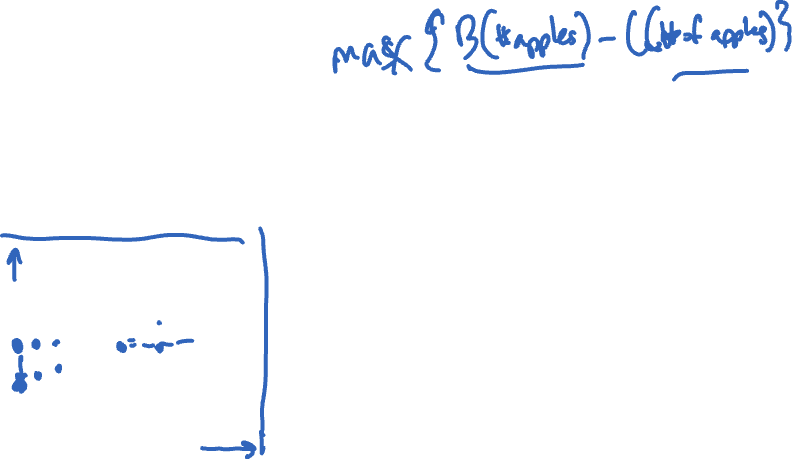 max { B(# apples) - C(# of apples) }